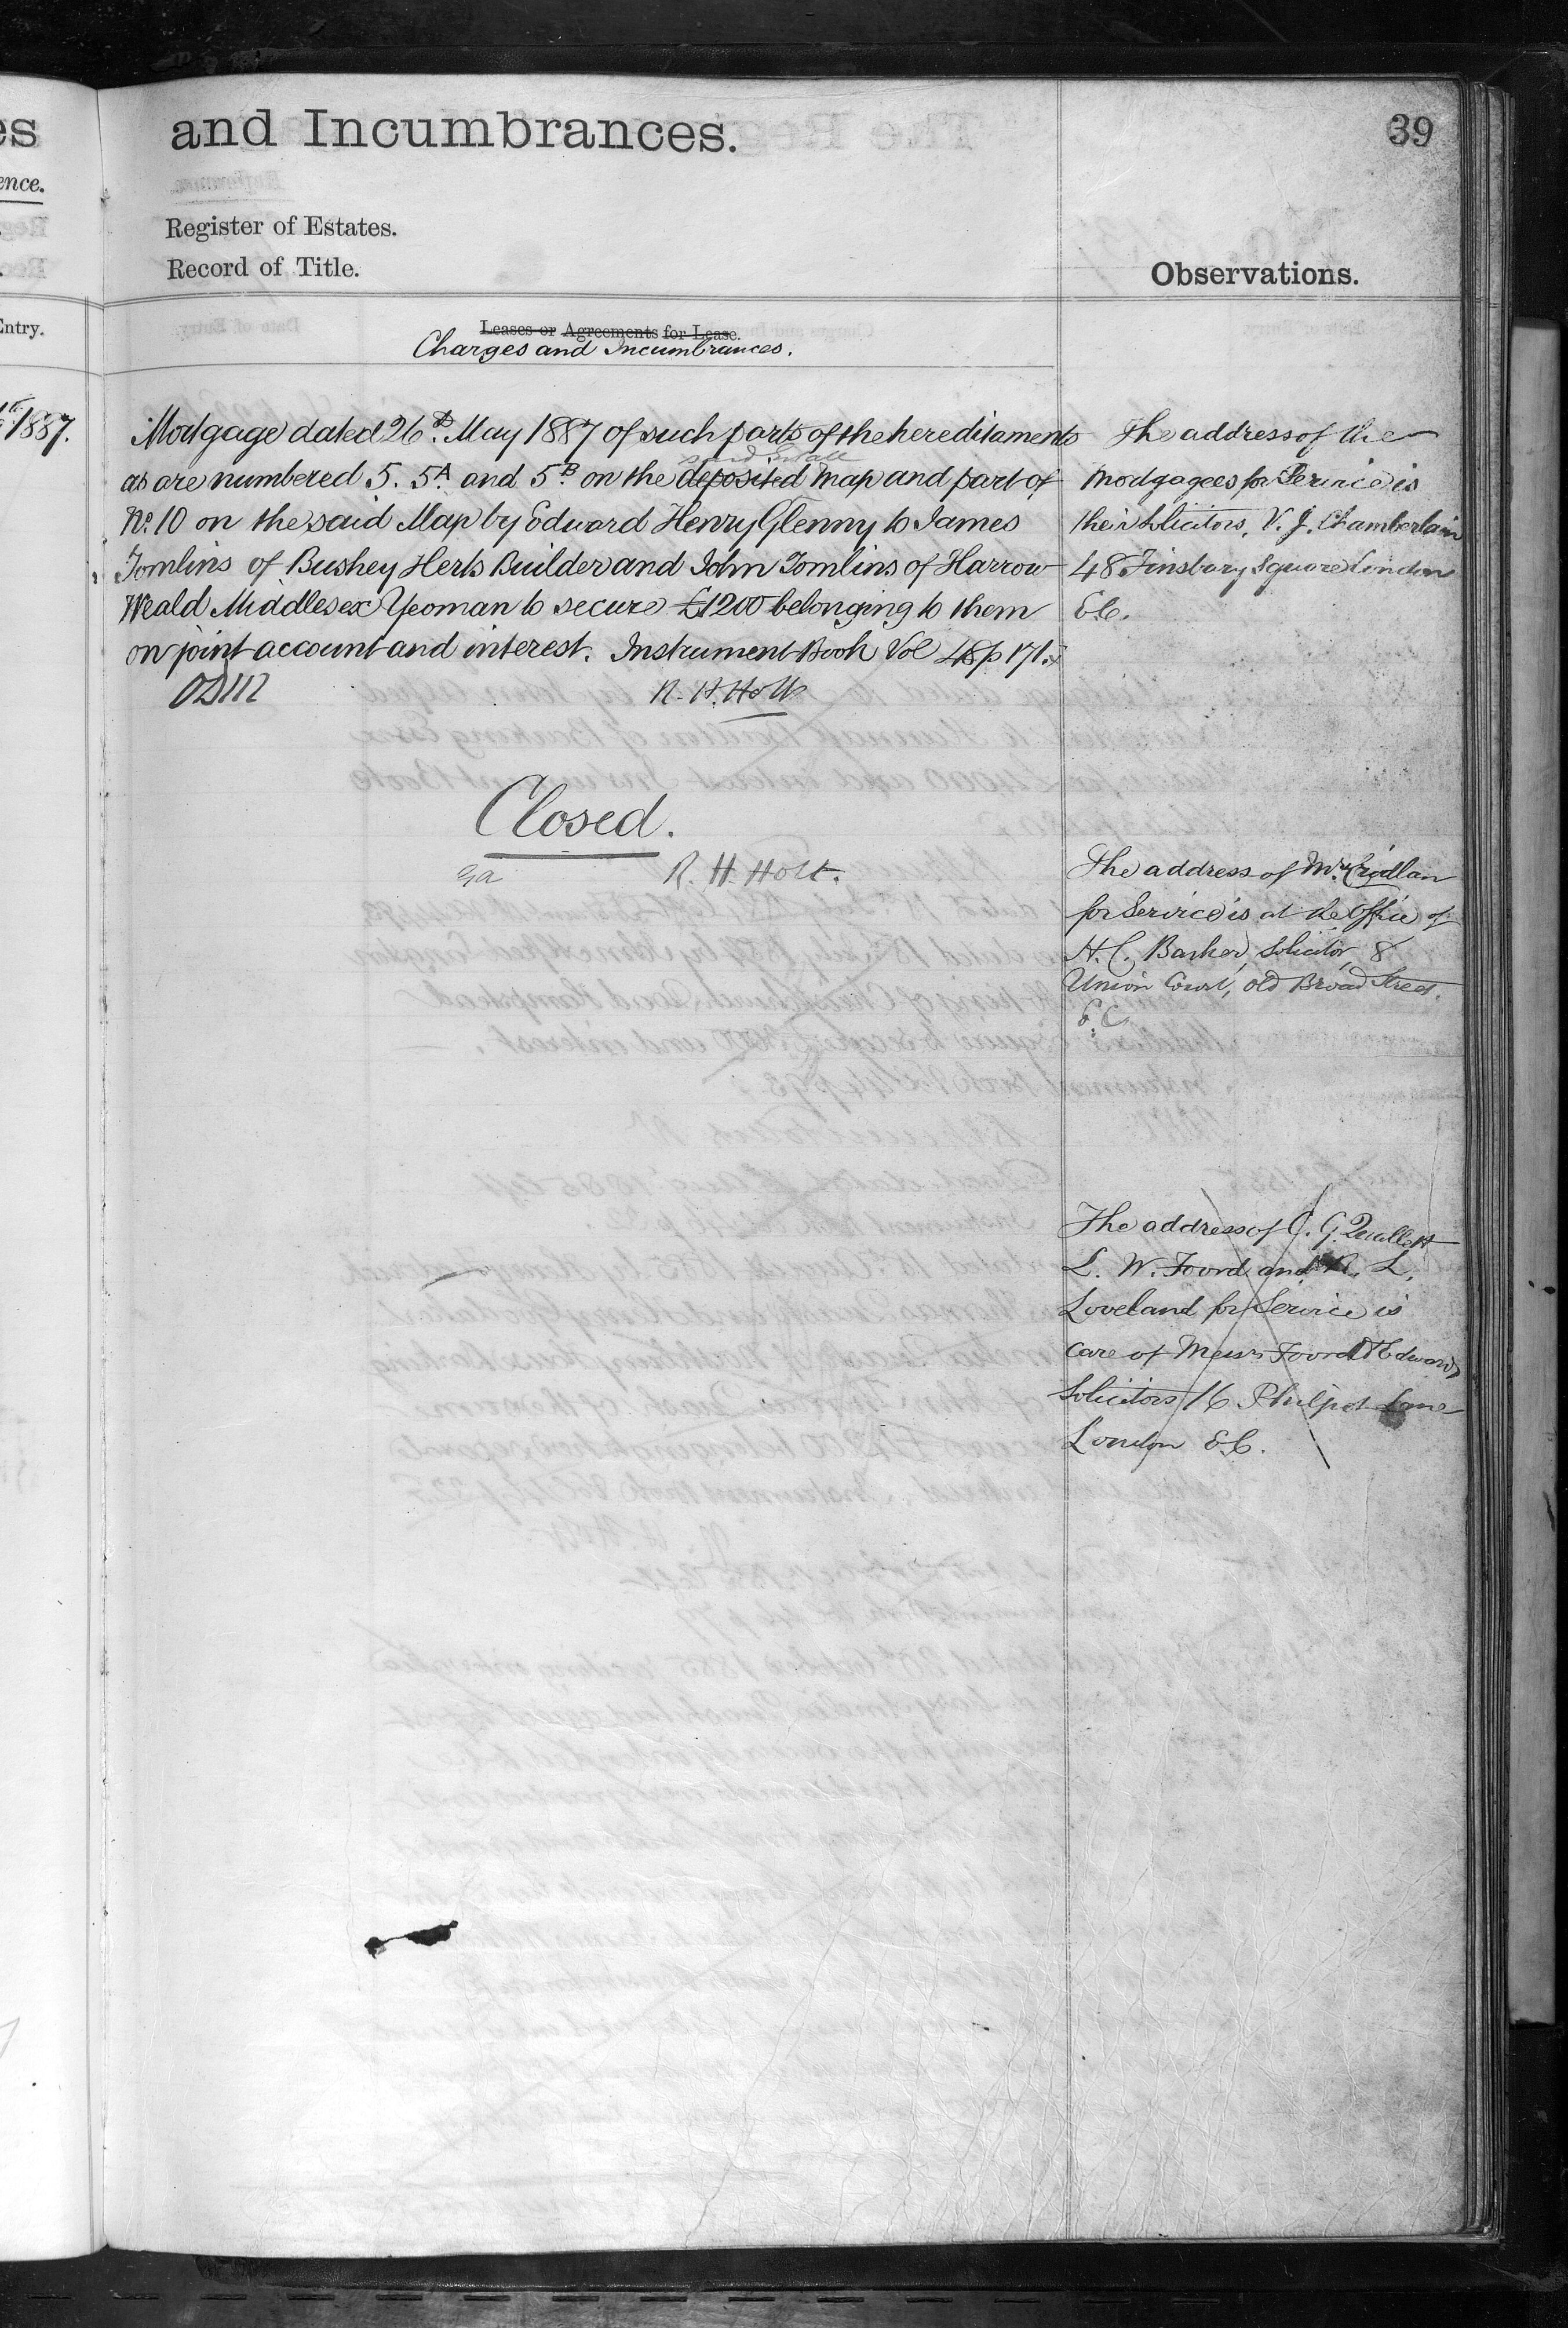 es
and Incumbrances.
39
ence.
Register of Estates.
Record of Title.
Observations.
Entry.
Leases or Agreements for Lease.
Charges and Incumbrances.
1887.
Mortgage dated 26th May 1887 of such parts of the hereditaments
said Estate
as are numbered 5. 5A and 5B on the deposited map and part of
No. 10 on the said Map by Edward Henry Glenny to James
Tomlins of Bushey Herts Builder and John Tomlins of Harrow
Weald Middlesex Yeoman to secure £1200 belonging to them
on joint account and interest. Instrument Book Vol 48 p 171.
R. H. Holt
Closed.
R. H. Holt.
The address of the
Mortgagees for Service is
their Solicitors, V. J. Chamberlain
48 Finsbury Square London
E.C.
The address of
for Service is at the Office of
H. C. Barker, Solicitor, 8
Union Court, Old Broad Street.
E.C.
The address of C. G.
L. W. Foord and R. L.
Loveland for Service is
care of Messrs Foord & Edwards
Solicitors 16 Philpot Lane
London E.C.